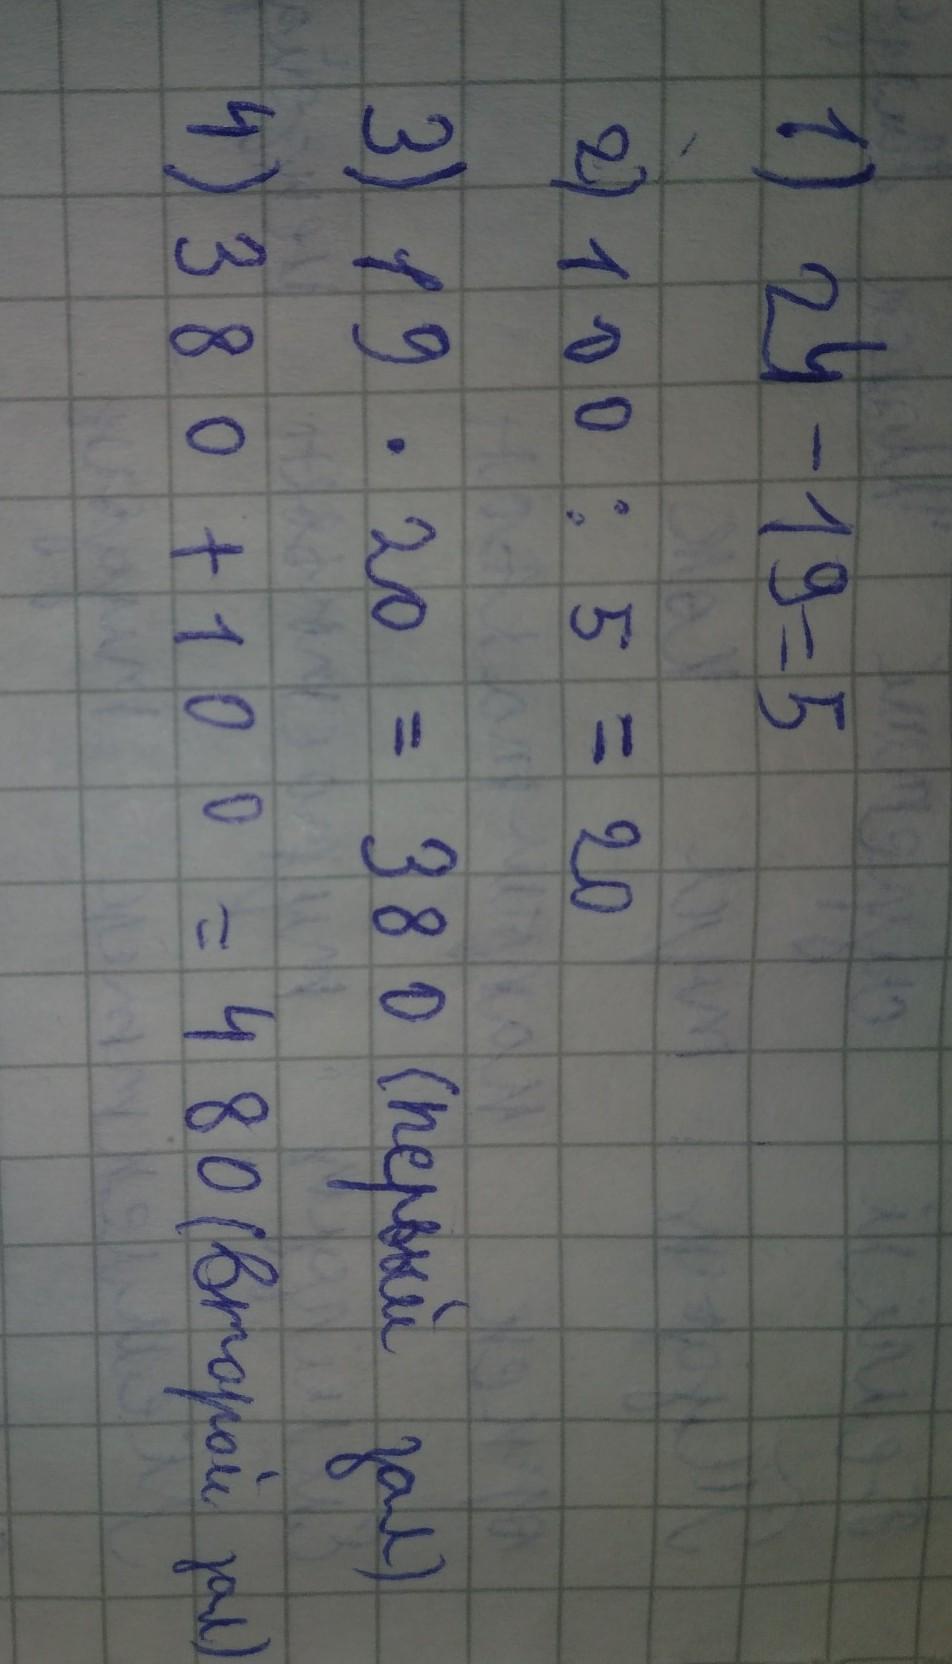 1) 24 - 19 = 5
2) 100 : 5 = 20
3) 19 · 20 = 380 (первый зал)
4) 380 + 100 = 480 (второй зал)